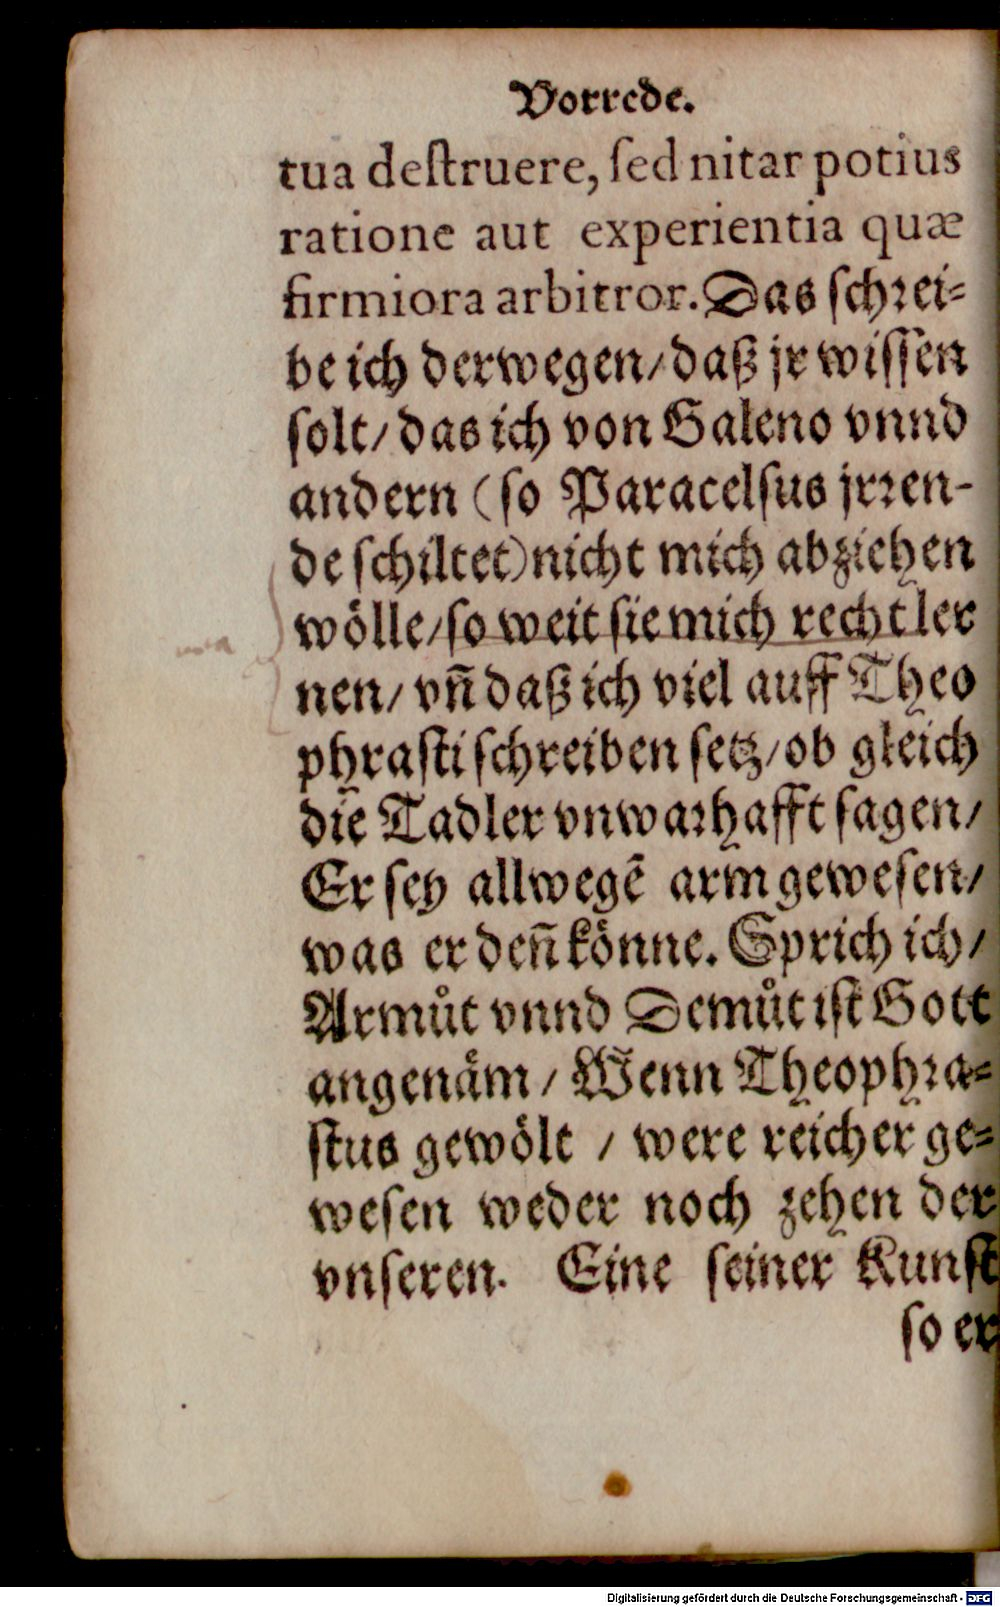 Vorrede.
tua destruere, sed nitar potius
ratione aut experientia quæ
firmiora arbitror. Das schrei-
be ich derwegen/ daß jr wissen
solt/ das ich von Galeno vnnd
andern (so Paracelsus jrren-
de schiltet) nicht mich abziehen
wölle/ so weit sie mich recht ler
nen/ vñ daß ich viel auff Theo
phrasti schreiben setz/ ob gleich
die Tadler vnwarhafft sagen/
Er sey allwegẽ arm gewesen/
was er deñ könne. Sprich ich/
Armůt vnnd Demůt ist Gott
angenäm/ Wenn Theophra-
stus gewölt / were reicher ge-
wesen weder noch zehen der
vnseren. Eine seiner Kunst
so er
Digitalisierung gefördert durch die Deutsche Forschungsgemeinschaft - DFG